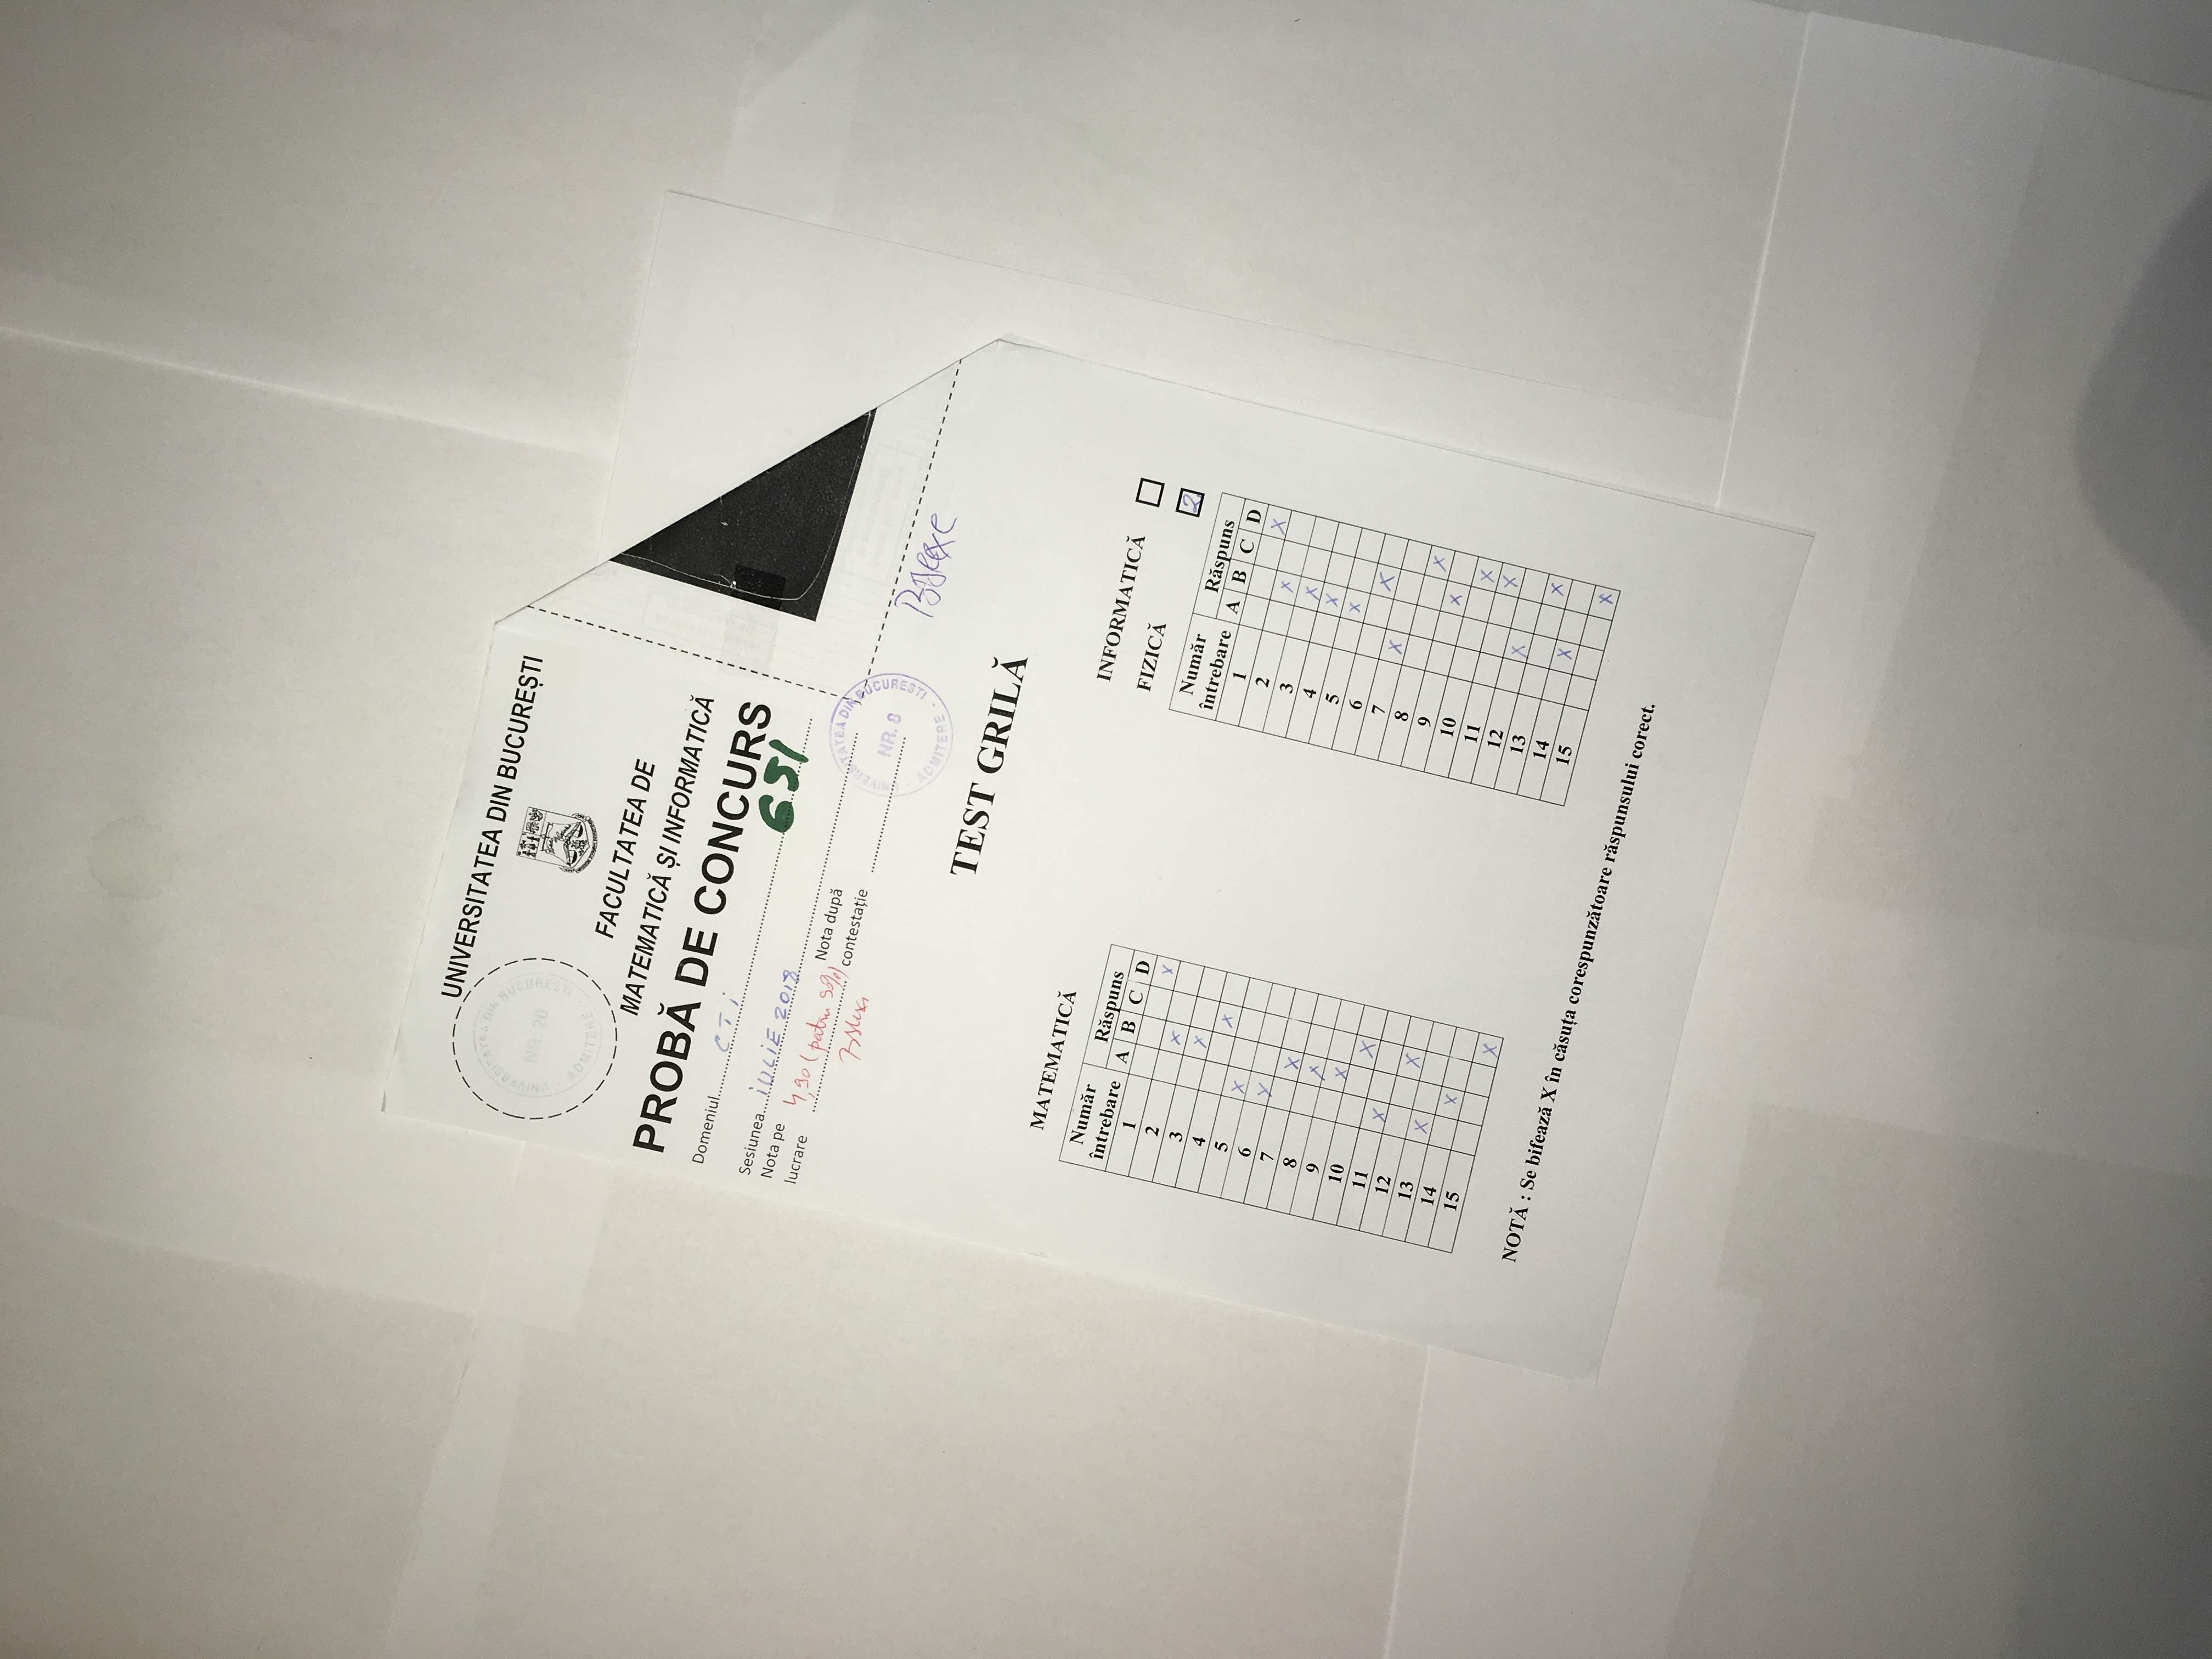 UNIVERSITATEA DIN BUCUREȘTI
UNIVERSITATEA DIN BUCUREȘTI
NR. 20
ADMITERE
FACULTATEA DE
MATEMATICĂ ȘI INFORMATICĂ
PROBĂ DE CONCURS
Domeniul CTi
651
Sesiunea iULiE 2018
Nota pe lucrare 4,90 (patru 90%)
Nota după contestație
UNIVERSITATEA DIN BUCURESTI
NR. 8
- ADMITERE -
TEST GRILĂ
MATEMATICĂ
Număr întrebare Răspuns
A B C D
1 X
2 X
3 X
4 X
5 X
6 X
7 X
8 X
9 X
10 X
11 X
12 X
13 X
14 X
15 X
INFORMATICĂ
FIZICĂ 2
Număr întrebare Răspuns
A B C D
1 X
2 X
3 X
4 X
5 X
6 X
7 X
8 X
9 X
10 X
11 X
12 X
13 X
14 X
15 X
NOTĂ : Se bifează X în căsuța corespunzătoare răspunsului corect.